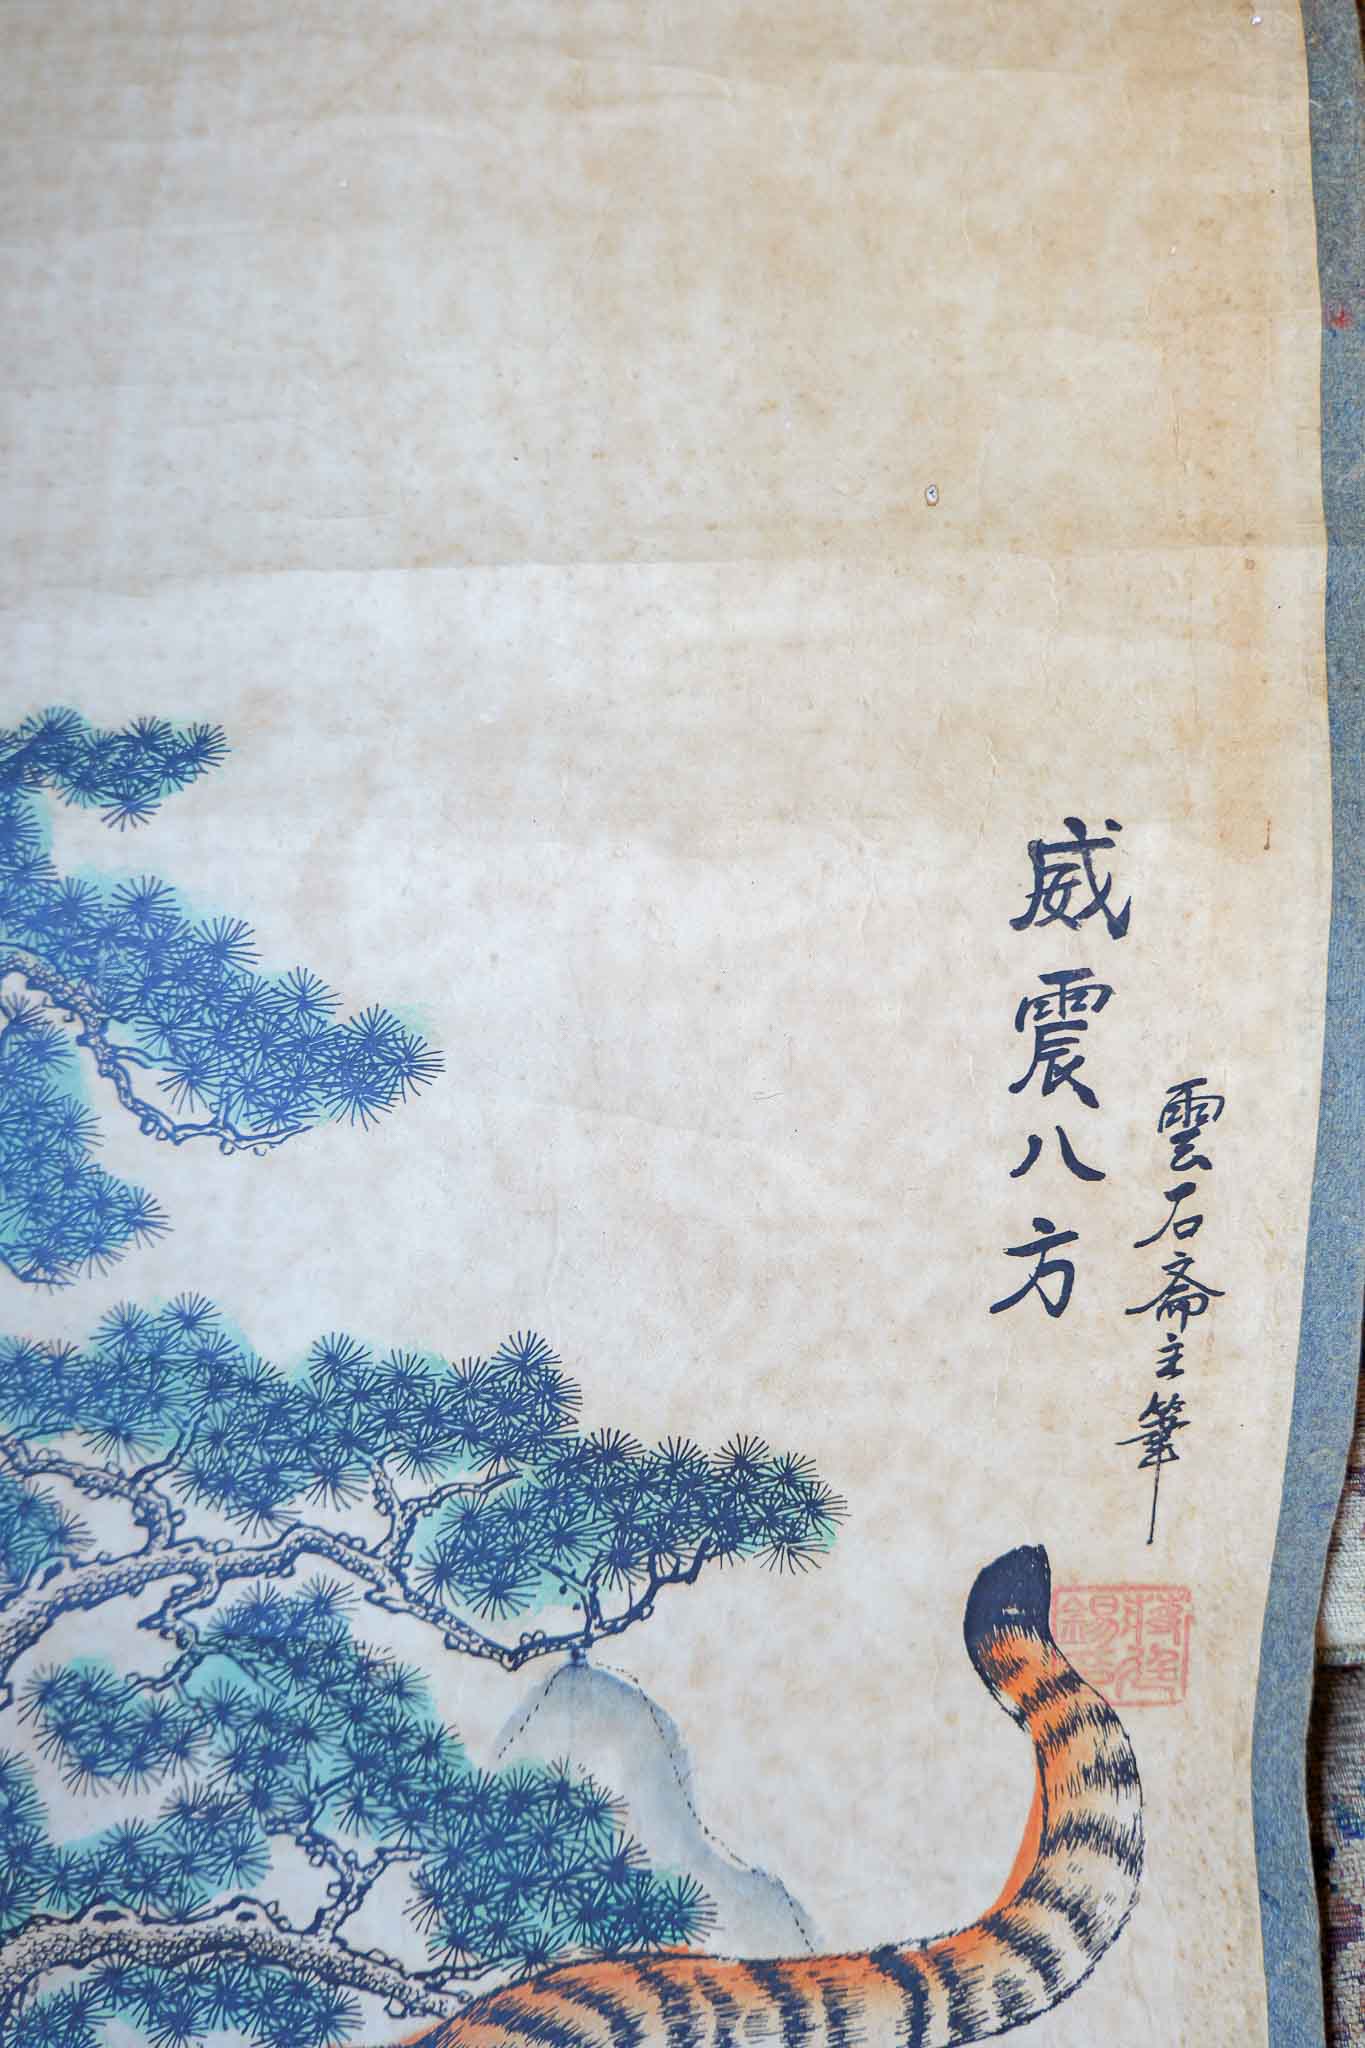 威震八方
雲石齋主筆